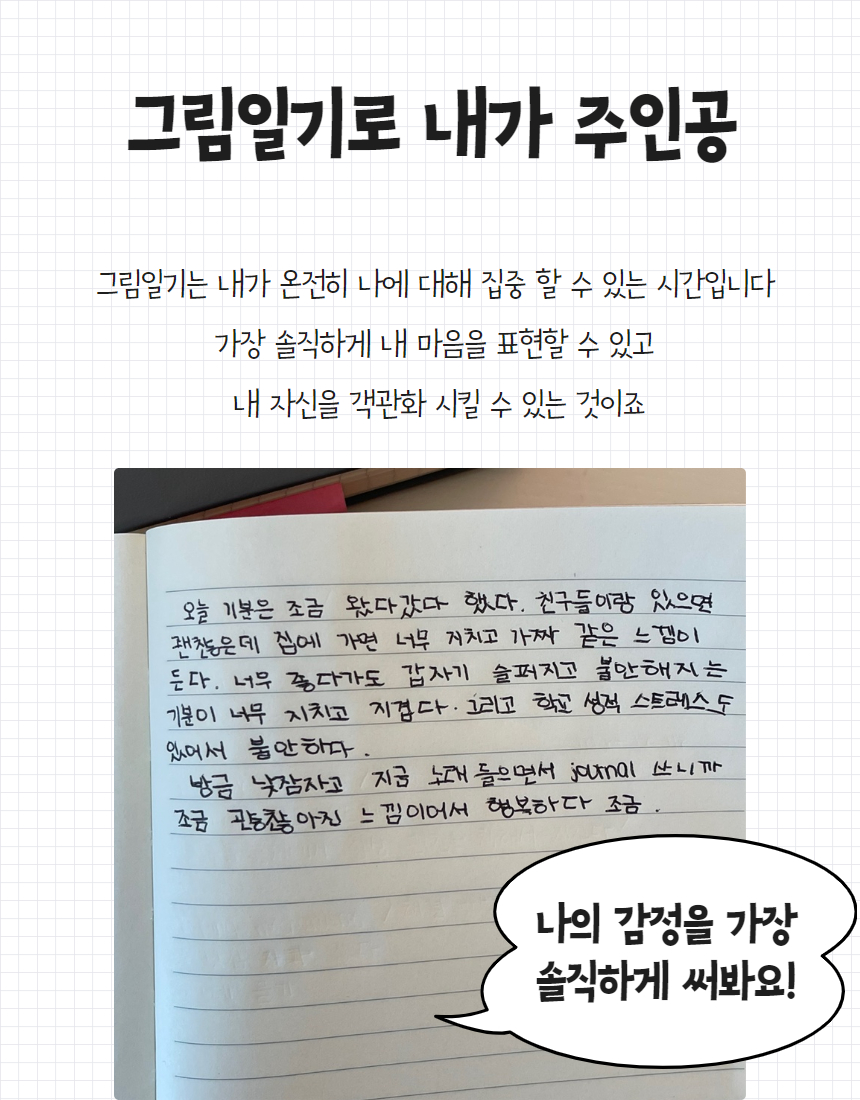 그림일기로 내가 주인공
그림일기는 내가 온전히 나에 대해 집중 할 수 있는 시간입니다
가장 솔직하게 내 마음을 표현할 수 있고
내 자신을 객관화 시킬 수 있는 것이죠
오늘 기분은 조금 왔다갔다 했다. 친구들이랑 있으면
괜찮은데 집에 가면 너무 지치고 가짜 같은 느낌이
든다. 너무 좋다가도 갑자기 슬퍼지고 불안해지는
기분이 너무 지치고 지겹다. 그리고 학교 성적 스트레스도
있어서 불안하다.
방금 낮잠자고 지금 노래 들으면서 journal 쓰니까
조금 괜찮아진 느낌이어서 행복하다 조금.
나의 감정을 가장
솔직하게 써봐요!